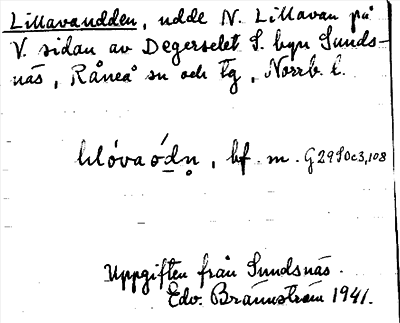 Lillavaudden, udde N. Lillavan på
V. sidan av Degerselet S. byn Sunds-
näs, Råneå sn och tg, Norrb. l.
lılóvaód̲ṇ, bf. m. G 29 S0c3,108
Uppgiften från Sundsnäs.
Edv. Brännström 1941.